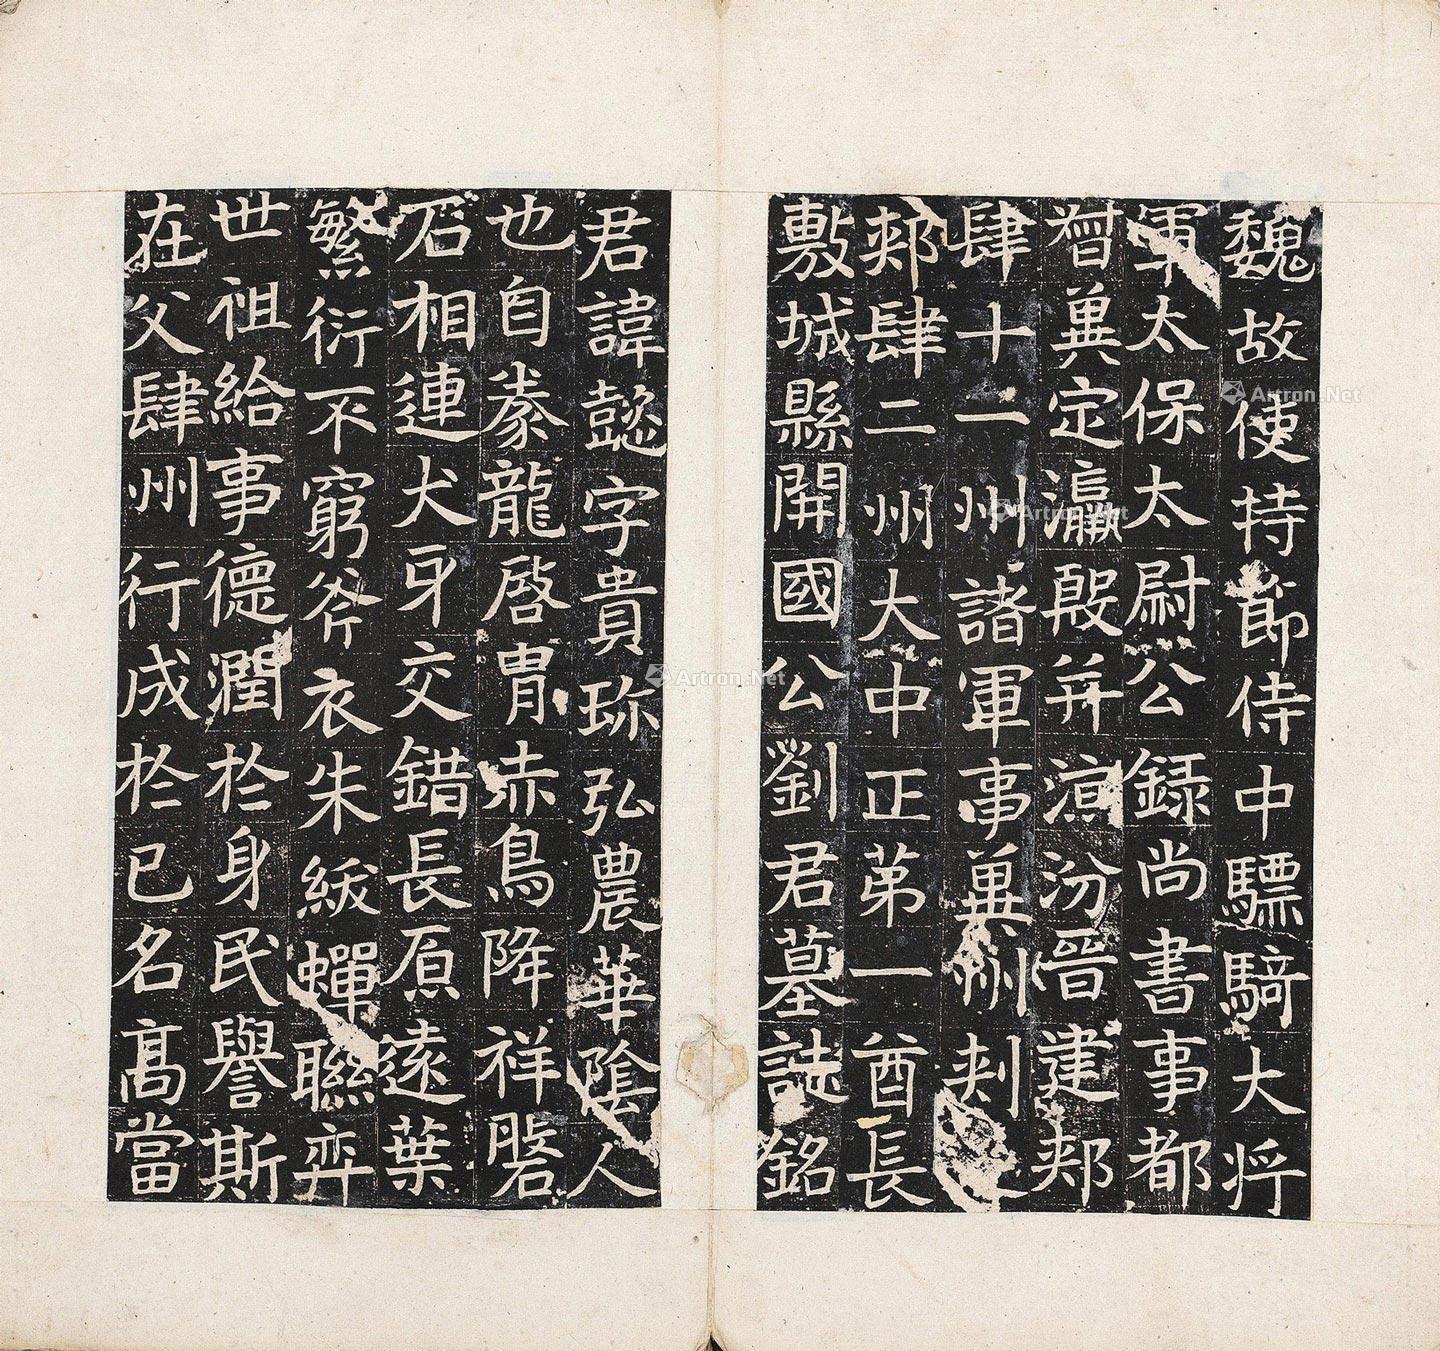 魏故使持節侍中驃騎大將
軍太保太尉公錄尚書事都
督冀定瀛殷并涼汾晉建郟
肆十一州諸軍事冀州刺史
郟肆二州大中正第一酋長
敷城縣開國公劉君墓誌銘
君諱懿字貴珍弘農華陰人
也自豢龍啓胄赤鳥降祥磐
石相連犬牙交錯長原遠葉
繁衍不窮斧衣朱紱蟬聯弈
世祖給事德潤於身民譽斯
在父肆州行成於己名高當
Artron.Net
Artron.Net
Artron.Net